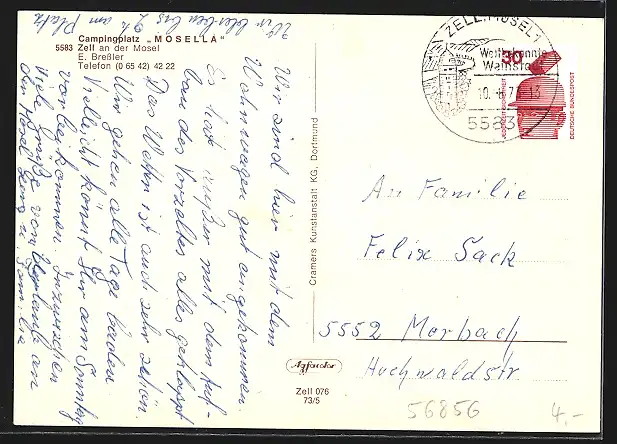 Wir bleiben bis 9h am Platz
Campingplatz „MOSELLA"
5583 Zell an der Mosel
E. Breßler
Telefon (0 65 42) 42 22
Wir sind hier mit dem
Wohnwagen gut angekommen.
Es hat außer mit dem Auf-
bau des Vorzeltes alles geklappt
Das Wetter ist auch sehr schön.
Wir gehen alle Tage baden
Vielleicht könnt Ihr am Sonntag
vorbei kommen. Inzwischen
viele Grüße vom
der Mosel u. Familie
Cramers Kunstanstalt KG, Dortmund
Zell 076
73/5
ZELL, MOSEL 1
Weltbekannte
Weinstadt
5583
30
DEUTSCHE BUNDESPOST
An Familie
Felix Sack
5552 Morbach
Hochwaldstr
56856
4,-